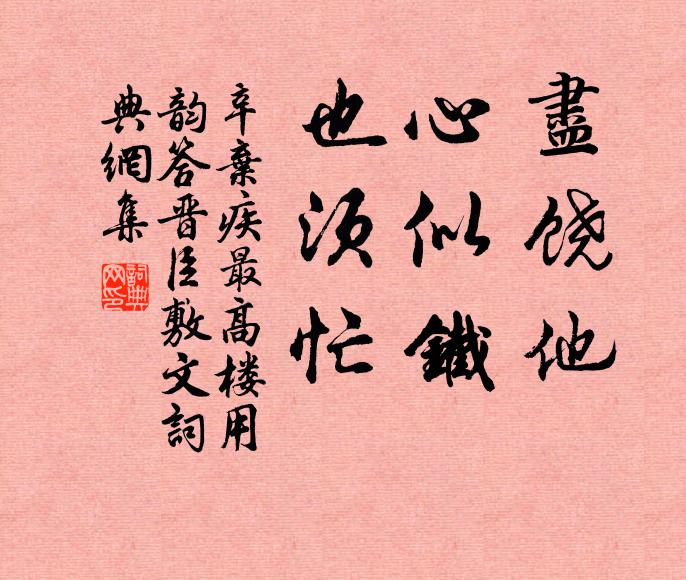 盡饶他
心似鐵
也须忙
辛棄疾最高楼用
韵答晋臣敷文詞
典網集
詞典
网印